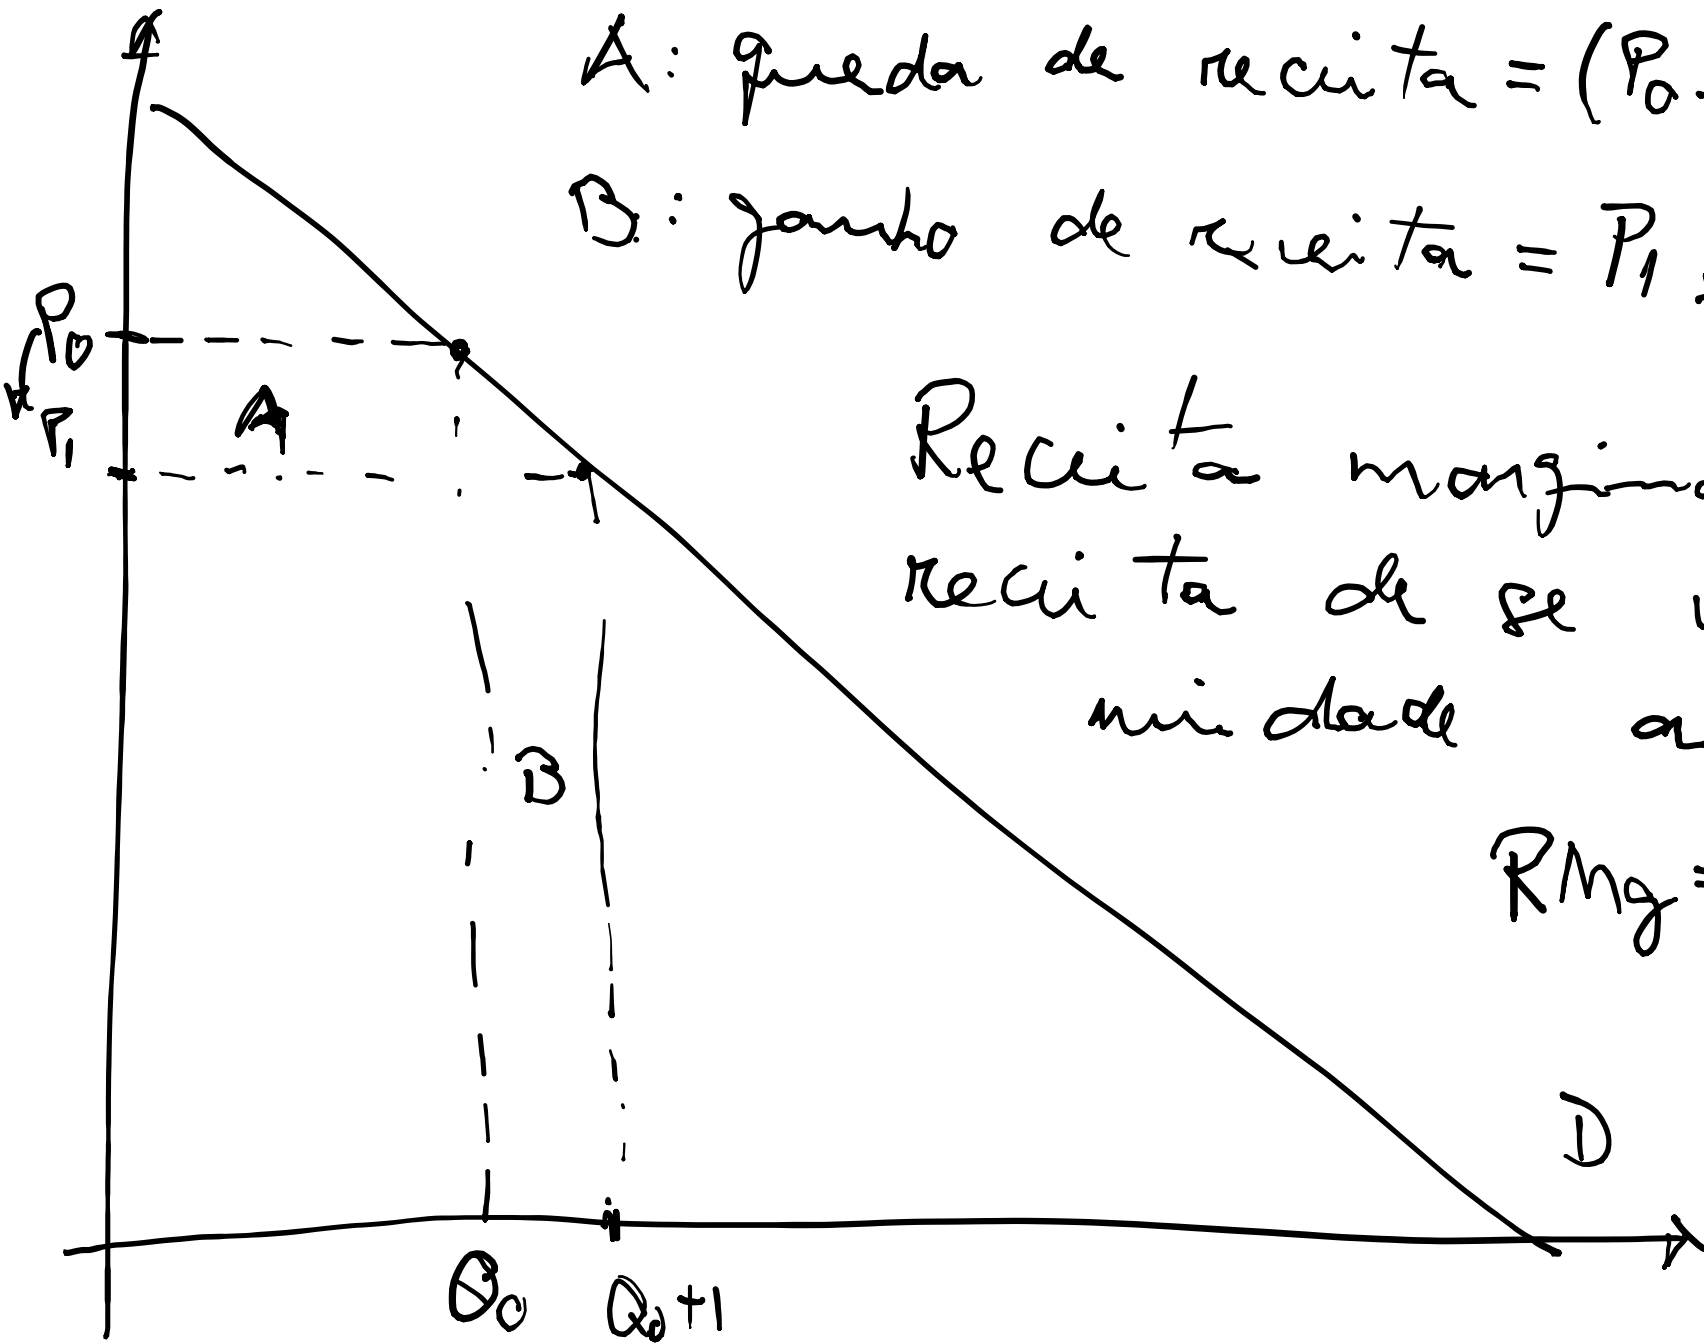 A: queda de receita = (P₀
B: ganho de receita = P₁
P₀
P₁
A
Receita margin
receita de se
unidade
B
RMg =
D
Q₀
Q₀+1